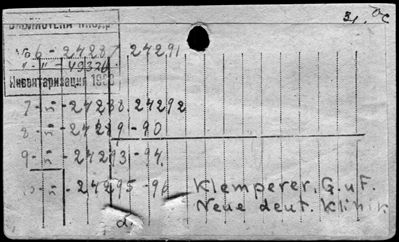 31.
БИБЛИОТЕКА
№ 6 - 24287, 24291
" - " - 49326
Инвентаризация 19
7 - " - 24288-24292
8 - " - 24289-90
9 - " - 24293-94
10 - " - 24295-96 Klemperer, G. u F.
Neue deut. Klinik
d.